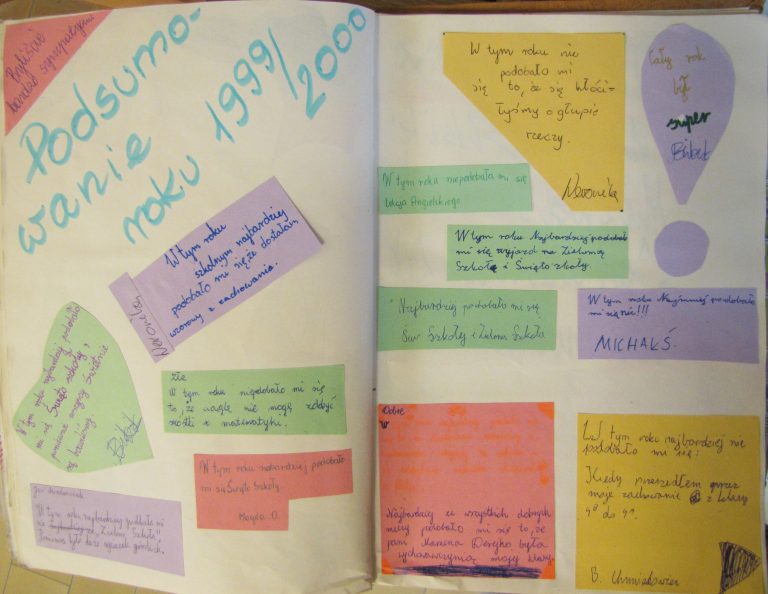 Byliście
bardzo sympatyczni
Podsumo-
wanie
roku 1999/
2000
W tym roku
szkolnym najbardziej
podobało mi się że dostałam
wzorowy z zachowania.
Weronika
W tym roku najbardziej podobało
mi się Święto szkoły,
ponieważ wszyscy świetnie
się bawiliśmy.
Bibet
Źle
W tym roku niepodobało mi się
to, że ciągle nie mogę zdobyć
szóstki z matematyki.
W tym roku najbardziej podobało
mi się Święto Szkoły.
Magda O.
W tym roku najbardziej podobała mi
się "Zielona Szkoła"
Ponieważ było dużo wycieczek górskich.
W tym roku nie
podobało mi
się to, że się kłóci-
łyśmy o głupie
rzeczy.
Weronika
Cały rok
był
super
Bibet
W tym roku niepodobała mi się
lekcja Angielskiego
W tym roku Najbardziej podobał
mi się wyjazd na Zieloną
Szkołę i Święto szkoły.
Najbardziej podobało mi się
Św. Szkoły i Zielona Szkoła
W tym roku Najmniej podobało
mi się nic!!!
MICHAŁŚ.
Dobre
W
Najbardziej ze wszystkich dobrych
rzeczy podobało mi się to, że
pani Marzena Deręgo była
wychowawczynią mojej klasy.
W tym roku najbardziej nie
podobało mi się:
Kiedy przeszedłem przez
moje zachowanie z klasy
4ᵃ do 4ᶜ.
B. Chmielewicz